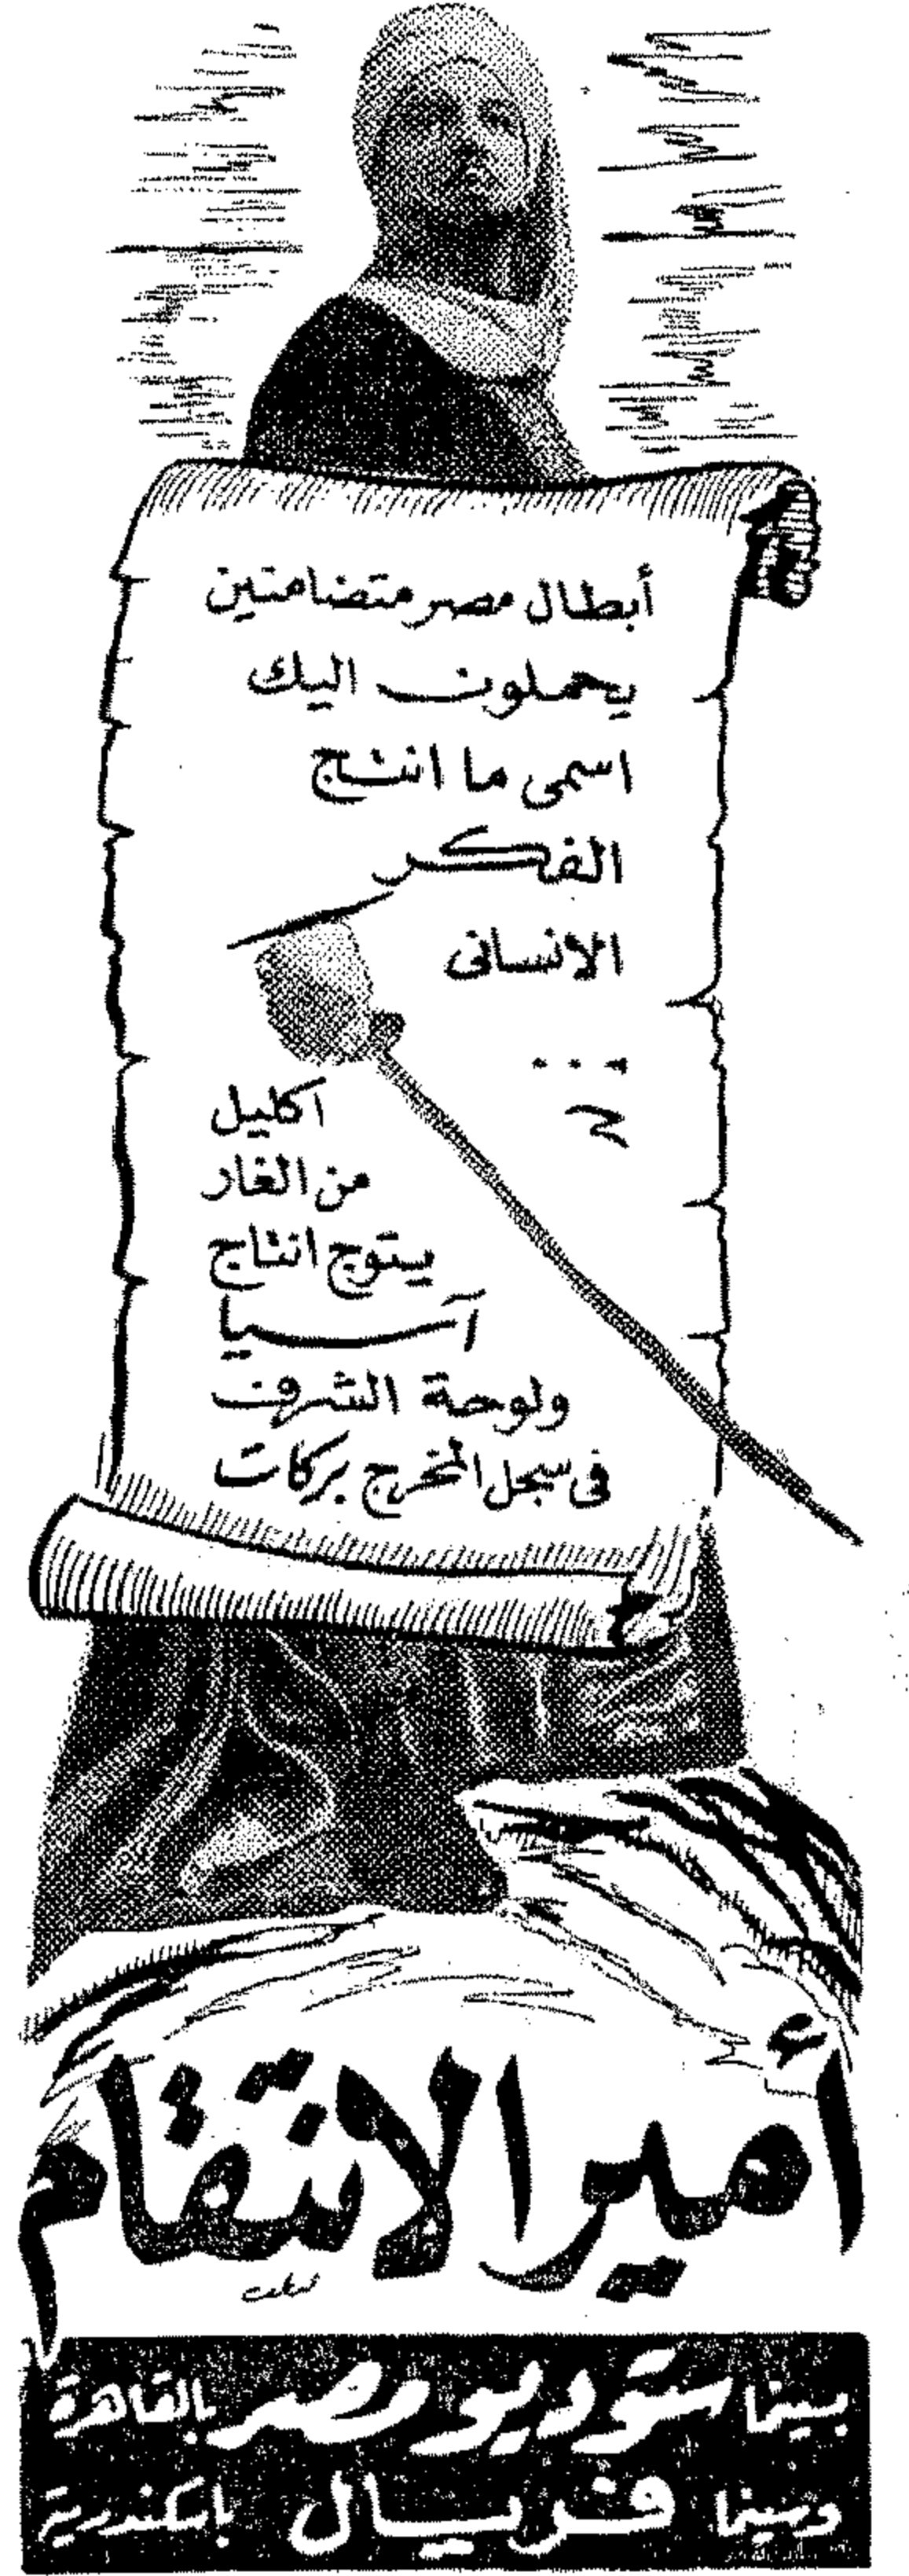 أبطال مصر متضامنين
يحملون اليك
اسمى ما انتاج
الفكر
الانسانى
...
اكليل
من الغار
يتوج انتاج
آسيا
ولوحة الشرف
فى سجل المخرج بركات
أمير الانتقام
بسينما ستوديو مصر بالقاهرة
وسينما فريال باسكندرية